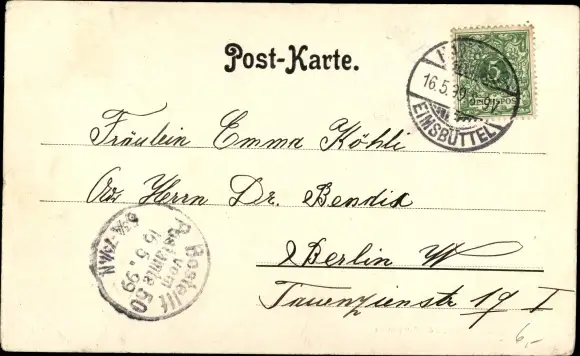 Post-Karte.
16.5.99
EIMSBÜTTEL
5
REICHSPOST
Fräulein Emma Köhli
Adr Herrn Dr. Bendix
Berlin W
Tauenzienstr 19 I
Bestellt
vom
Postamte 50
16.5.99
6,-